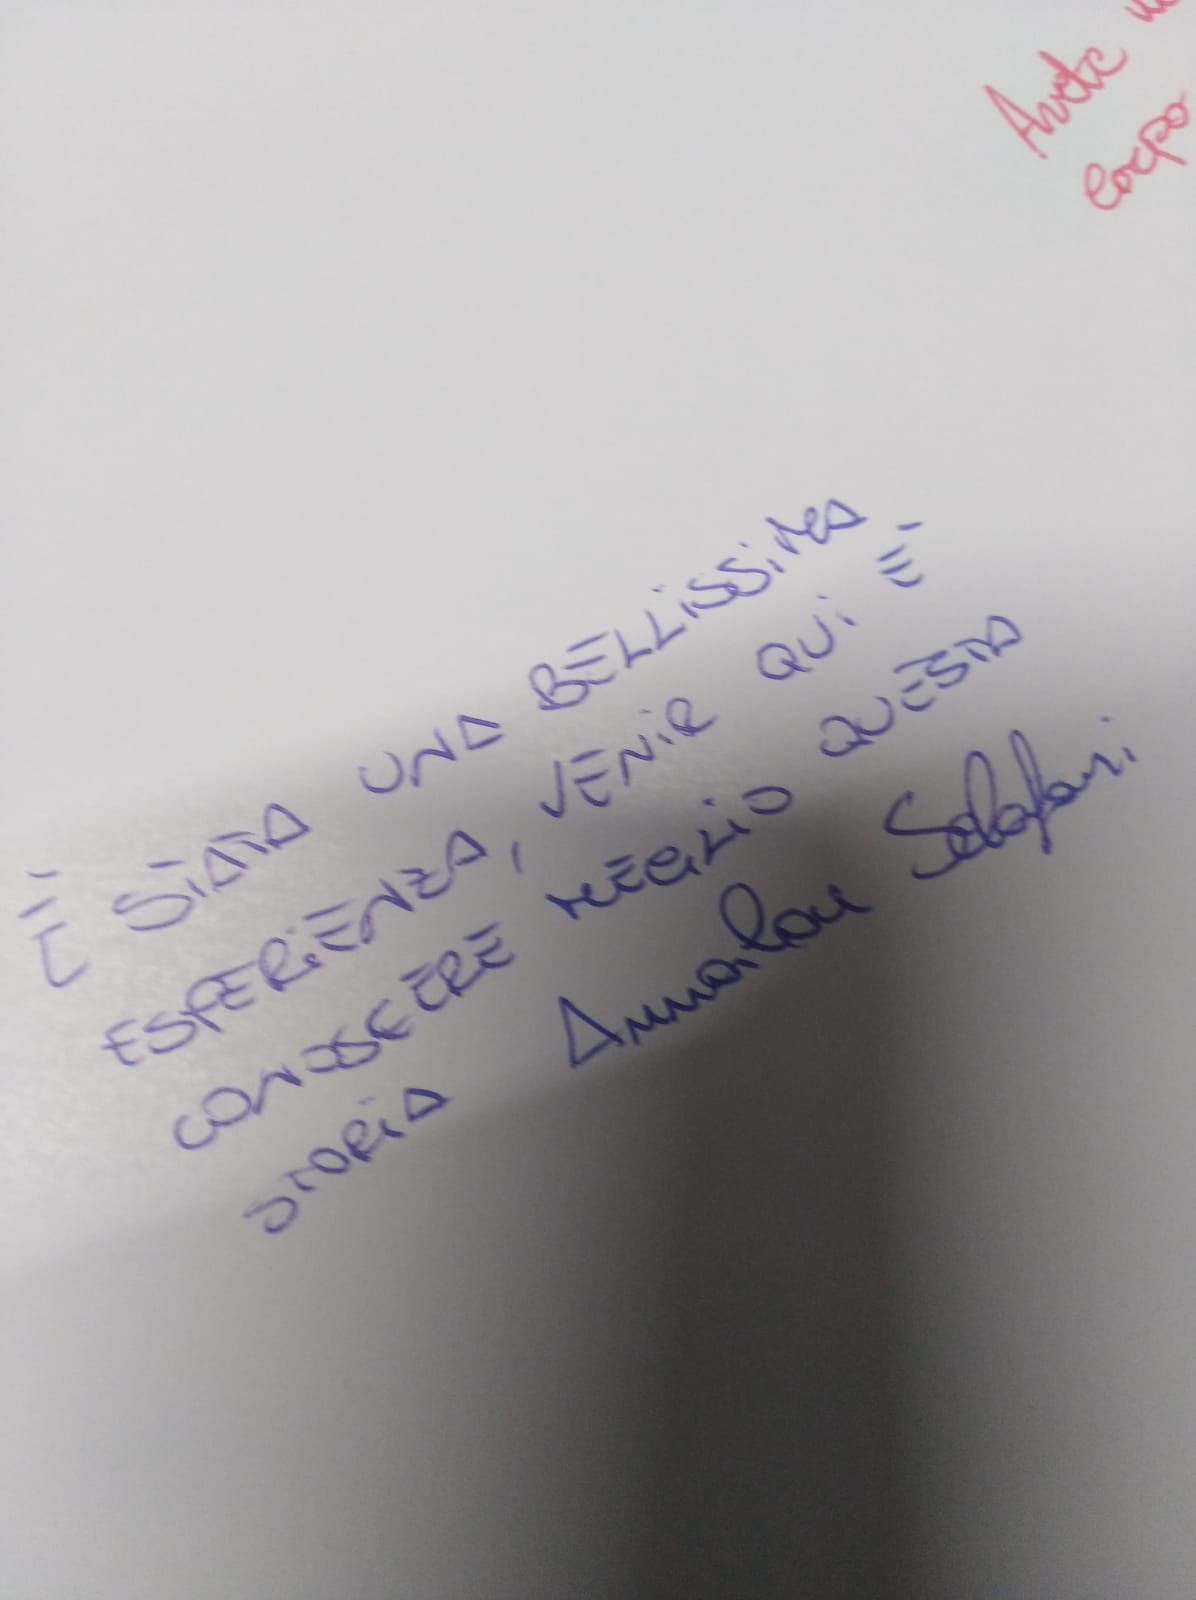 Avete
corpo
È STATA UNA BELLISSIMA
ESPERIENZA, VENIR QUI E
CONOSCERE MEGLIO QUESTA
STORIA